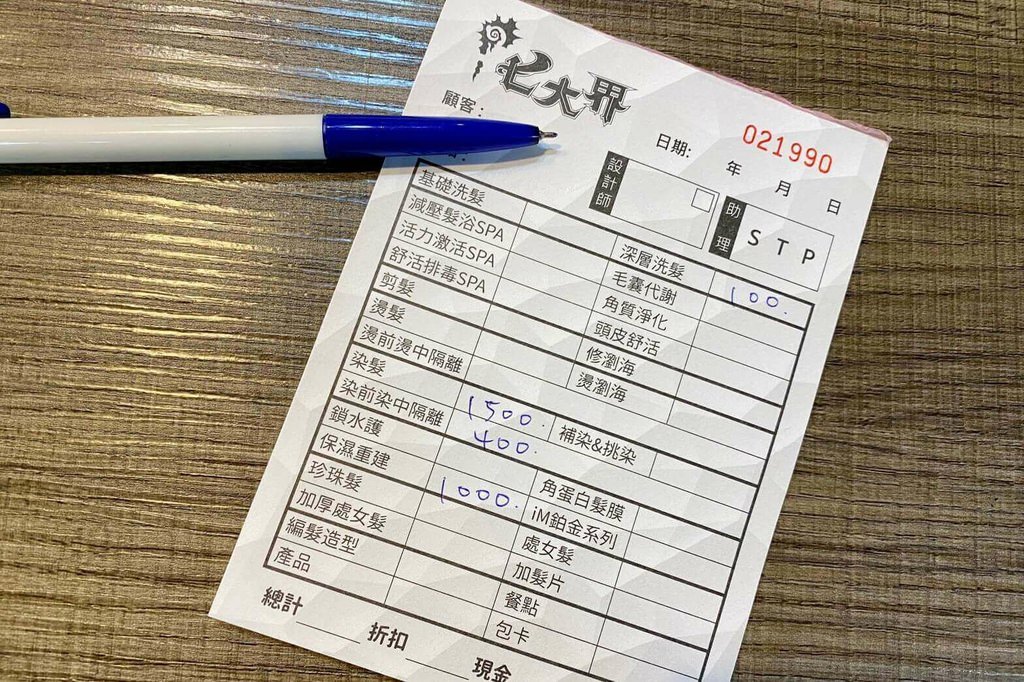 七大界
021990
顧客:
日期: 年 月 日
設計師
助理 S T P
基礎洗髮 深層洗髮 100.
減壓髮浴SPA 毛囊代謝
活力激活SPA 角質淨化
舒活排毒SPA 頭皮舒活
剪髮 修瀏海
燙髮 燙瀏海
燙前燙中隔離
染髮 1500. 補染&挑染
染前染中隔離 400.
鎖水護 角蛋白髮膜
保濕重建 1000. iM鉑金系列
珍珠髮 處女髮
加厚處女髮 加髮片
編髮造型 餐點
產品 包卡
總計 折扣 現金